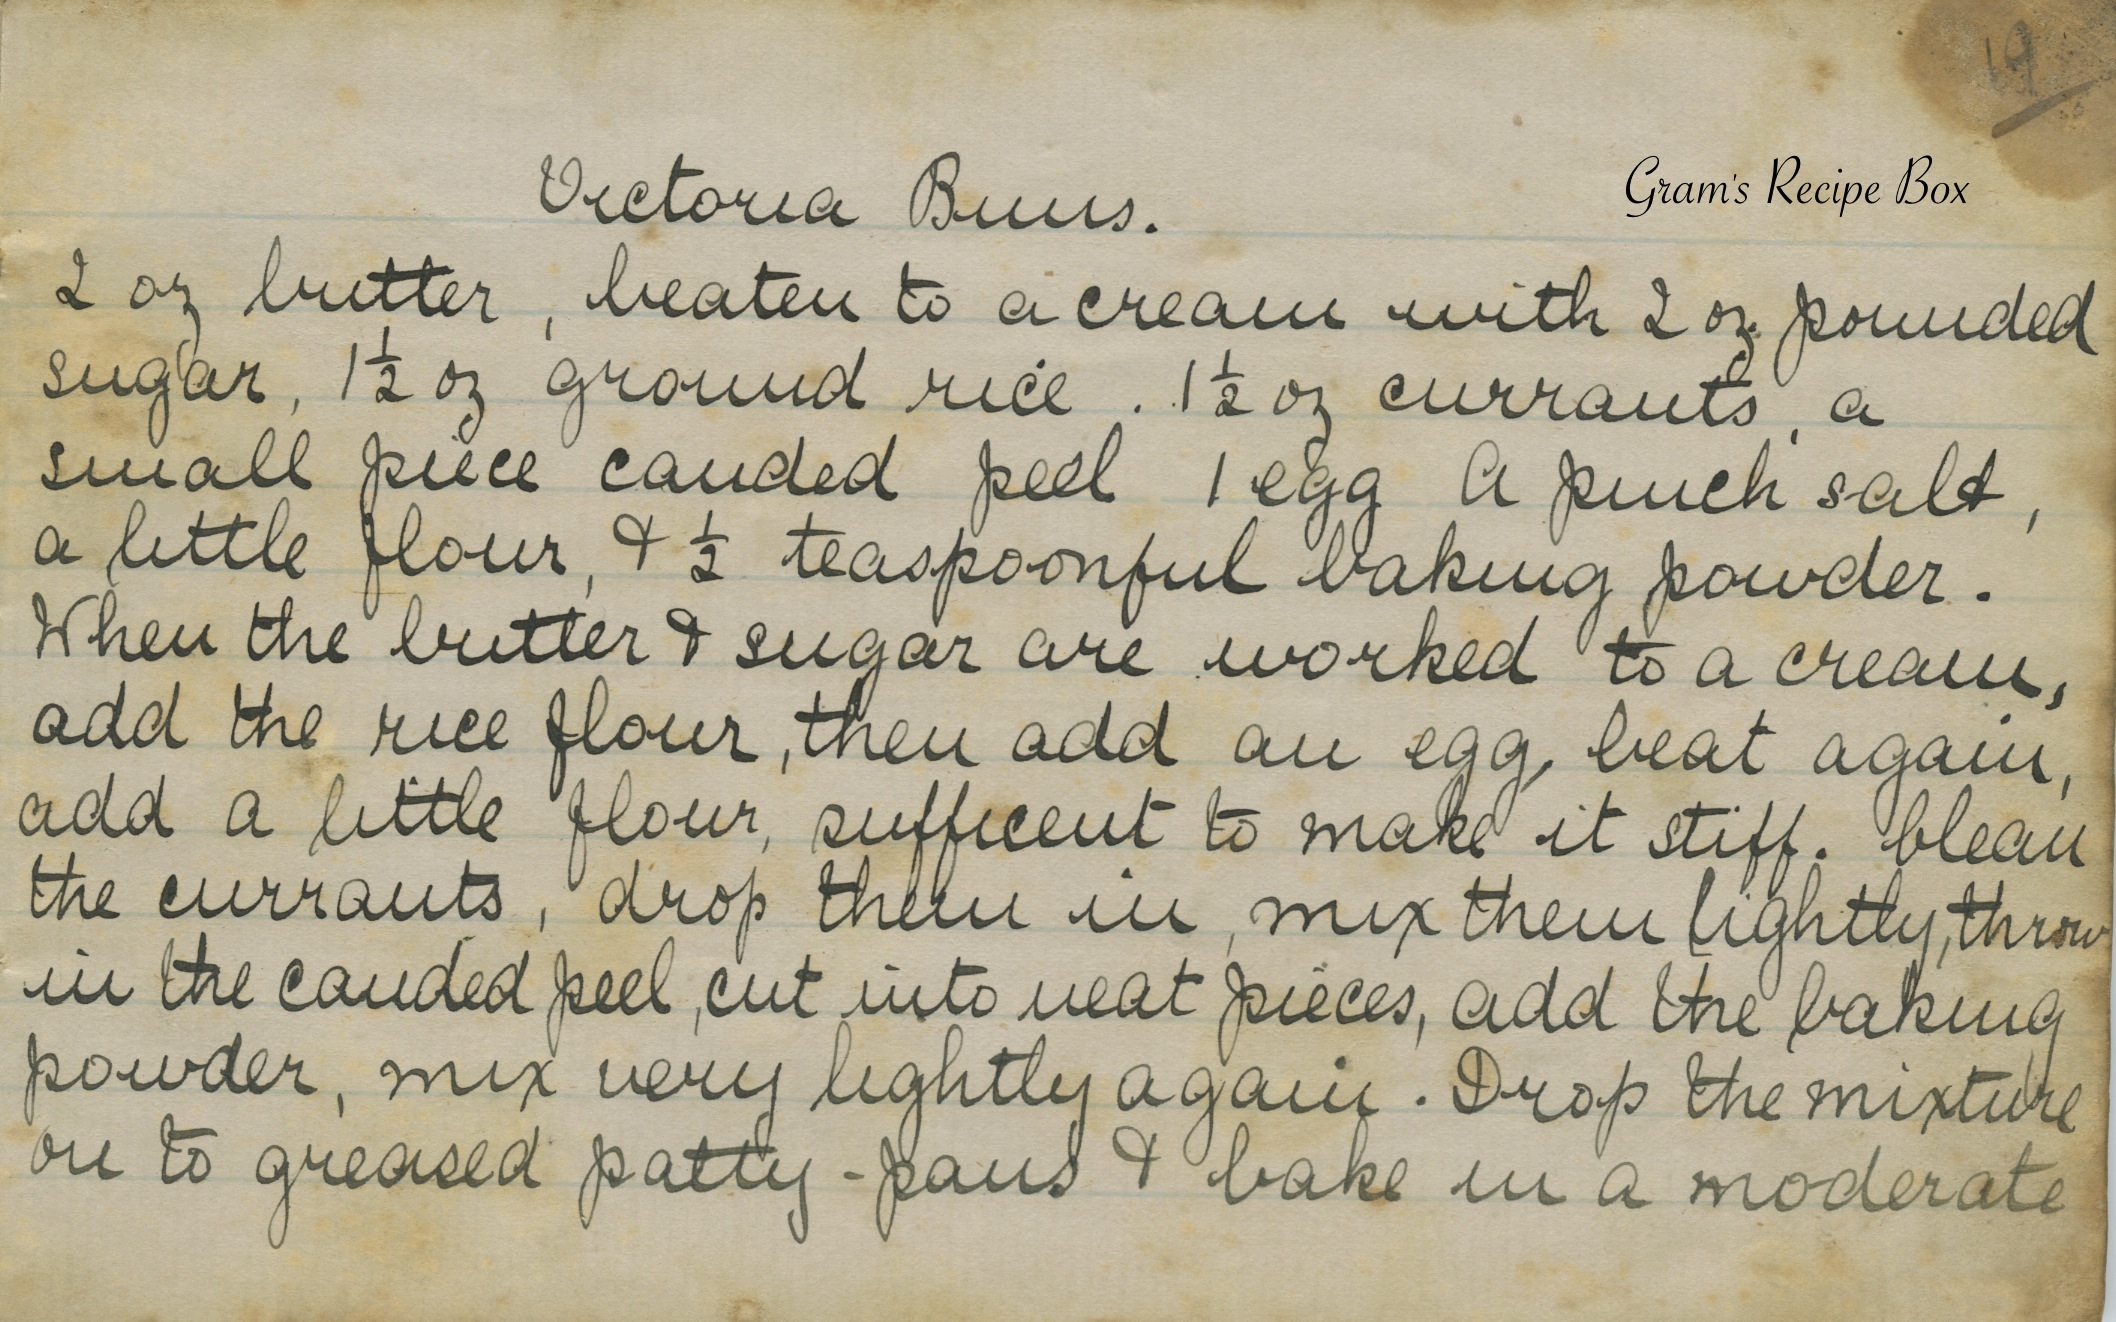 19
Victoria Buns.
Gram's Recipe Box
2 oz butter, beaten to a cream with 2 oz pounded
sugar, 1½ oz ground rice. 1½ oz currants, a
small piece candied peel 1 egg A pinch salt,
a little flour, & ½ teaspoonful baking powder.
When the butter & sugar are worked to a cream,
add the rice flour, then add an egg, beat again,
add a little flour, sufficent to make it stiff. Clean
the currants, drop them in, mix them lightly, throw
in the candied peel, cut into neat pieces, add the baking
powder, mix very lightly again. Drop the mixture
on to greased patty-pans & bake in a moderate